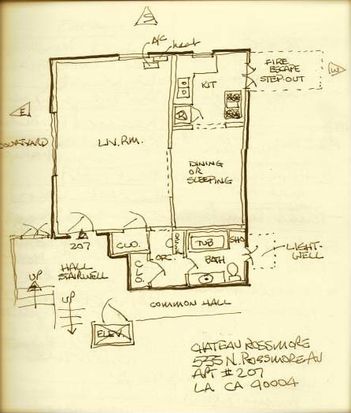 S
A/C
heat
FIRE
ESCAPE
STEP OUT
W
KIT
E
COURTYARD
LIV. RM.
R
DINING
OR
SLEEPING
207
CLO.
TUB
SHO
BATH
LIGHT-
WELL
HALL
STAIRWELL
UP
UP
CLO
COMMON HALL
ELEV.
CHATEAU ROSSMORE
APT # 207
LA. CA 90004